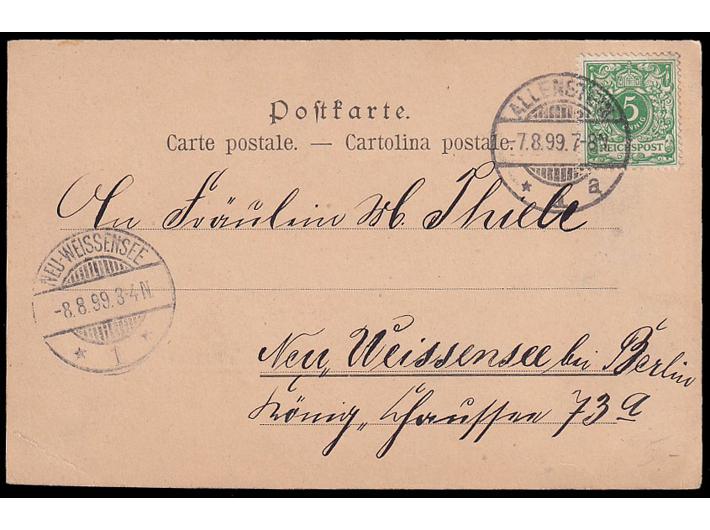 Postkarte.
Carte postale. — Cartolina postale.
ALLENSTEIN
-7.8.99.7-8N.
* 1 a
5
REICHSPOST
An Fräulein M. Thiele
NEU-WEISSENSEE
-8.8.99.3-4N
* 1 *
Neu Weissensee bei Berlin
König Chaussee 73a
5.-